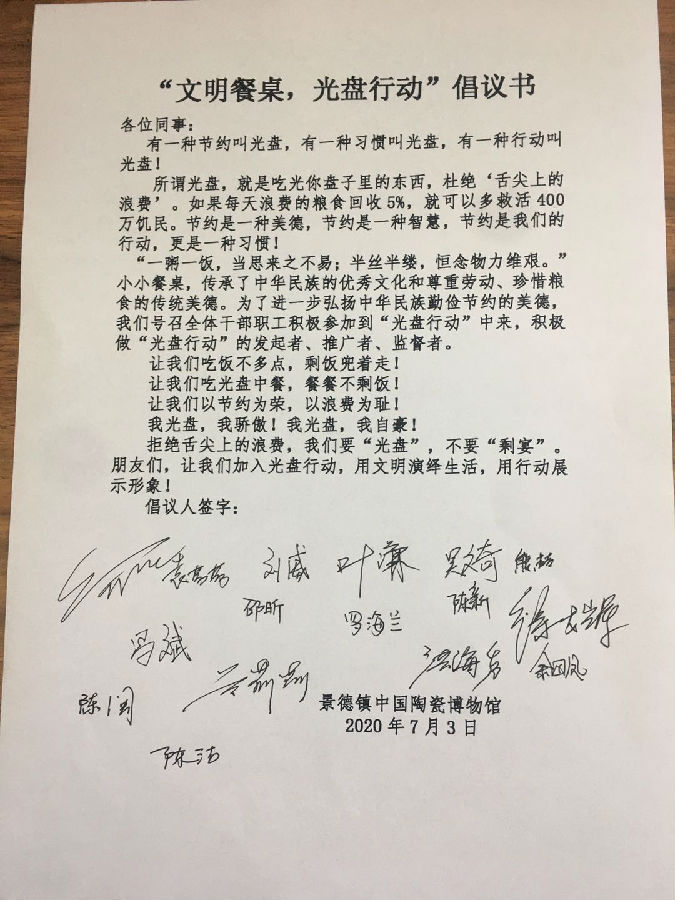 “文明餐桌，光盘行动”倡议书
各位同事：
有一种节约叫光盘，有一种习惯叫光盘，有一种行动叫
光盘！
所谓光盘，就是吃光你盘子里的东西，杜绝‘舌尖上的
浪费’。如果每天浪费的粮食回收 5%，就可以多救活 400
万饥民。节约是一种美德，节约是一种智慧，节约是我们的
行动，更是一种习惯！
“一粥一饭，当思来之不易；半丝半缕，恒念物力维艰。”
小小餐桌，传承了中华民族的优秀文化和尊重劳动、珍惜粮
食的传统美德。为了进一步弘扬中华民族勤俭节约的美德，
我们号召全体干部职工积极参加到“光盘行动”中来，积极
做“光盘行动”的发起者、推广者、监督者。
让我们吃饭不多点，剩饭兜着走！
让我们吃光盘中餐，餐餐不剩饭！
让我们以节约为荣，以浪费为耻！
我光盘，我骄傲！我光盘，我自豪！
拒绝舌尖上的浪费，我们要“光盘”，不要“剩宴”。
朋友们，让我们加入光盘行动，用文明演绎生活，用行动展
示形象！
倡议人签字：
刘威
邵昕 罗海兰 陈新
冯斌
余回凤
陈润
景德镇中国陶瓷博物馆
2020 年 7 月 3 日
陈洁